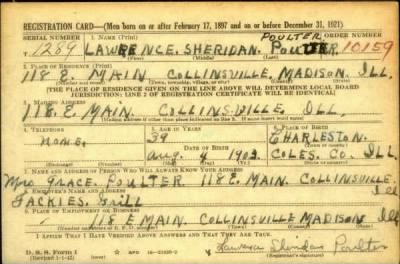 REGISTRATION CARD—(Men born on or after February 17, 1897 and on or before December 31, 1921)
SERIAL NUMBER 1. NAME (Print) POULTER ORDER NUMBER
T 1289 LAWRENCE. SHERIDAN. POULTER 10159
(First) (Middle) (Last)
2. PLACE OF RESIDENCE (Print)
118 E. MAIN COLLINSVILLE, MADISON ILL.
(Number and street) (Town, township, village, or city) (County) (State)
[THE PLACE OF RESIDENCE GIVEN ON THE LINE ABOVE WILL DETERMINE LOCAL BOARD
JURISDICTION; LINE 2 OF REGISTRATION CERTIFICATE WILL BE IDENTICAL]
3. MAILING ADDRESS
118. E. MAIN. COLLINSVILLE ILL.
[Mailing address if other than place indicated on line 2. If same insert word same]
4. TELEPHONE 5. AGE IN YEARS 6. PLACE OF BIRTH
NONE. 39 CHARLESTON.
DATE OF BIRTH
Aug 4 1903. COLES. Co. ILL
7. NAME AND ADDRESS OF PERSON WHO WILL ALWAYS KNOW YOUR ADDRESS
Mrs GRACE. POULTER 118 E. MAIN. COLLINSVILLE. Ill
8. EMPLOYER'S NAME AND ADDRESS
JACKIES. Grill
9. PLACE OF EMPLOYMENT OR BUSINESS
118 E MAIN. COLLINSVILLE MADISON Ill
I AFFIRM THAT I HAVE VERIFIED ABOVE ANSWERS AND THAT THEY ARE TRUE.
D. S. S. Form 1
Lawrence Sheridan Poulter